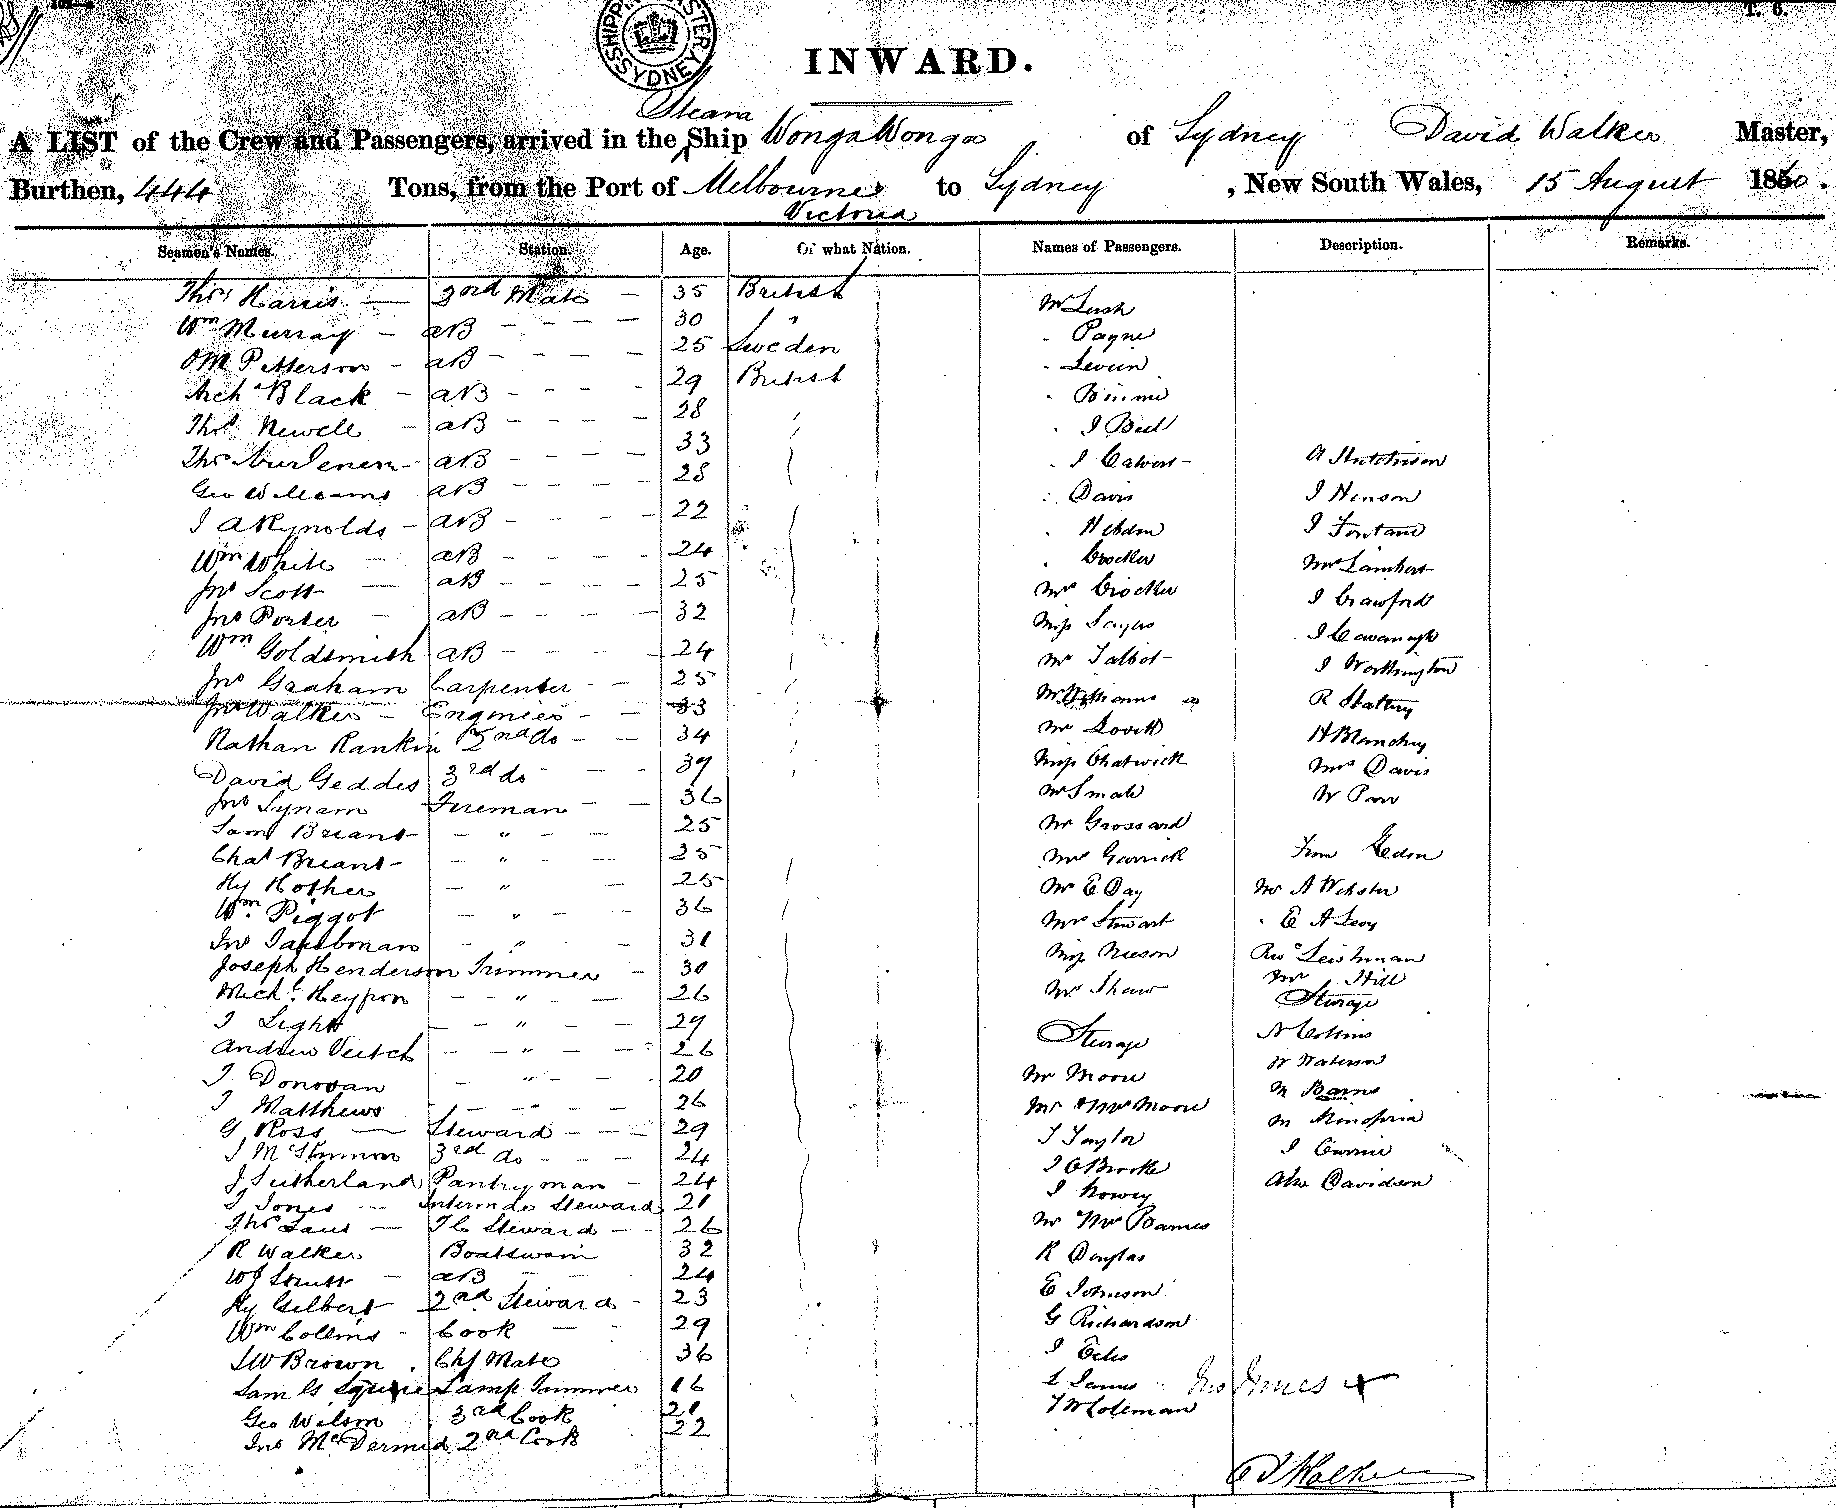 T. 6.
SHIPPING MASTER SYDNEY
INWARD.
Steam
A LIST of the Crew and Passengers, arrived in the Ship Wonga Wonga of Sydney David Walker Master,
Burthen, 444 Tons, from the Port of Melbourne to Sydney , New South Wales, 15 August 1860.
Victoria
Seamen's Names. Station. Age. Of what Nation. Names of Passengers. Description. Remarks.
Thos Harris 3rd Mate 35 British Mr Lush
Wm Murray AB 30 " Payne
Petterson AB 25 Sweden Levien
Archd Black AB 29 British Binnie
Thos Newell AB 28 J Bell
Thos AB 33 J Calvert A Hutchison
Geo Williams AB 28 Davis J Henson
J A Reynolds AB 22 Hebden J Fontane
Wm White AB 24 Crocker Mrs Lambert
Jno Scott AB 25 Mrs Crocker J Crawford
Jno Porter AB 32 Miss Sayers J Cavanagh
Wm Goldsmith AB 24 Mr Talbot J Worthington
Jno Graham Carpenter 25 Mr Williams R Slattery
Jno Walker Engineer 33 Mr Lovitt H Blanchey
Nathan Rankin 2nd do 34 Miss Chatwick Mrs Davis
David Geddes 3rd do 39 Mr Smale W Parr
Jno Lynam Fireman 36 Mr Grossard
Saml Briant " 25 Mrs Garrick From Eden
Chas Briant " 25 Mr E Day Mr A Webster
Hy Hother " 25 Mrs Stewart E A Levy
Wm Piggot " 36 Miss Neeson Revd Leishman
Jno " 31 Mr Shaw Mr Hill
Joseph Henderson Trimmer 30 Steerage
Michl Heyfron " 26 Steerage N Collins
J Light " 29 Mr Moore W Waterson
Andrew Veitch " 26 Mr & Mrs Moore M Barns
J Donovan " 20 J Taylor M
J Matthews " 26 J O Brooke J Currie
G Ross Steward 29 J Alexr Davidson
J M 3rd do 24 Mr Mrs Barnes
J Sutherland Pantryman 24 R Douglas
J Jones Intermde Steward 21 E Johnson
Thos Laws F C Steward 26 G Richardson
R Walker Boatswain 32 J
W J Strutt AB 24 L James Jno Jones x
Hy Gilbert 2nd Steward 23 Coleman
Wm Collins Cook 29
J W Brown Chf Mate 36
Sam G Squire Lamp Trimmer 16
Geo Wilson 3rd Cook 21
Jno McDermid 2nd Cook 22
D Walker